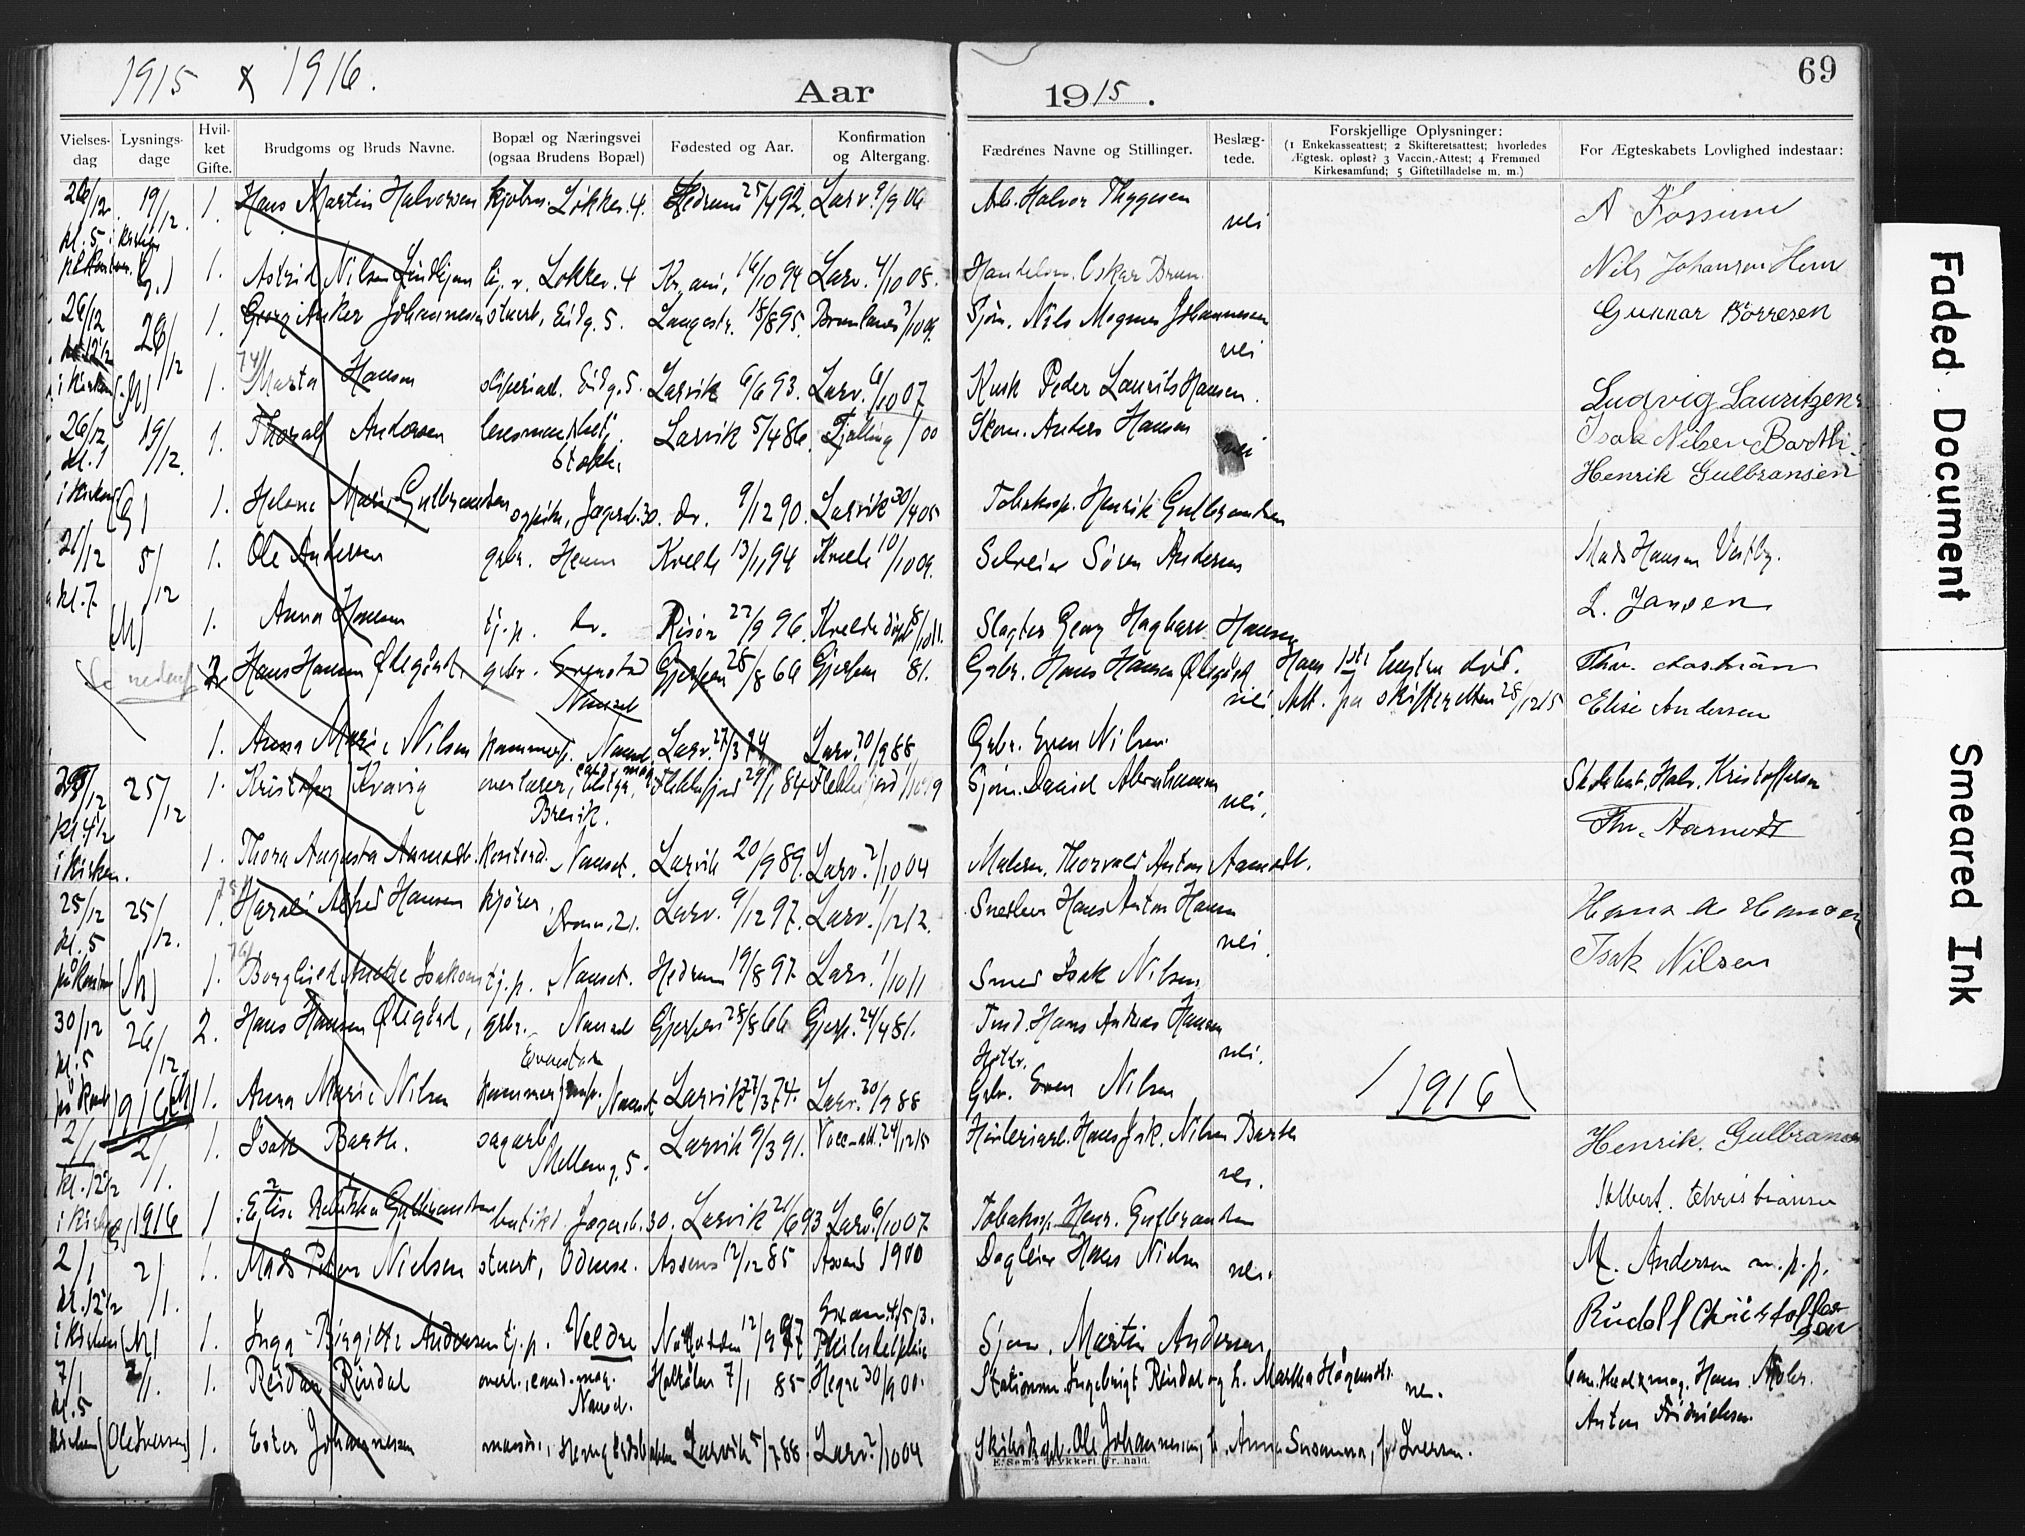 1915 & 1916.
Aar
1915.
69
Vielses-dag
Lysnings-dage
Hvil-ket Gifte.
Brudgoms og Bruds Navne.
Bopæl og Næringsvei (ogsaa Brudens Bopæl)
Fødested og Aar.
Konfirmation og Altergang.
Fædrenes Navne og Stillinger.
Beslæg-tede.
Forskjellige Oplysninger: (1 Enkekasseattest; 2 Skifteretsattest; hvorledes Ægtesk. opløst? 3 Vaccin.-Attest; 4 Fremmed Kirkesamfund; 5 Giftetilladelse m. m.)
For Ægteskabets Lovlighed indestaar:
26/12 kl. 5 19/12 1. Hans Martin Halvorsen Løkkev. 4. Hedrum 25/4 92. Larv. 9/9 06 Arb. Halvor Thygesen nei A Fossum
1. Astrid Nilsen Lindhjem Løkkev. 4 Kr.ania, 16/10 94 Larv. 4/10 08. Oskar Brun Nils Johansen Hem
26/12 kl. 12½ 26/12 1. Georg Anker Johannesen stuert, Eidg. 5. Langestr. 18/8 95. Brunlanes 3/10 09. Sjøm. Nils Magnus Johannesen nei Gunnar Børresen
i kirken (M) 1. Marta Hansen Eidg. 5. Larvik 6/6 93. Larv. 6/10 07 Kusk Peder Laurits Hansen. Ludvig Lauritzen
26/12 kl. 1 19/12. 1. Thoralf Andersen Larvik 5/4 86. Tjølling / 00 Skom. Anders Hansen nei Isak Nilsen Barth.
i kirken (G) 1. Helene Marie Gulbrandsen Jegersb. 30. do. 9/12 90. Larvik 30/4 05 Tobaksp. Henrik Gulbrandsen Henrik Gulbransen
26/12 kl. 7. 5/12 1. Ole Andersen gbr. Hem Kvelle 13/11 94 Kvelle 10/10 09. Selveier Søren Andersen Mads Hansen Vestby.
(M) 1. Anna Hansen tj.p. do. Risør 22/9 96. Kvelle 8/10 11. Slagter Georg Hagbart Hansen L. Jansen
Se nedenf. 2. Hans Hansen Øligård gbr. Evenstad Nanset Gjerpen 28/8 66 Gjerpen 81. Gbr. Hans Hansen Øligård nei Hans 1ste hustru død. Att. fra skifteretten 28/12 15 Thv. Aastrün
1. Anna Marie Nilsen kammerj. Nanset. Larv. 27/3 74 Larv. 30/9 88 Gbr. Even Nilsen. Elise Andersen
29/12 kl. 4½ 25/12 1. Kristofer Kvavig overlærer, cand. mag. Brevik. Flekkefjord 29/1 84 Flekkefjord Sjøm. Daniel Abrahamsen nei. Halv. Kristoffersen
i kirken. 1. Thora Augusta Aamodt. kontord. Nanset. Larvik 20/9 89. Larv. 2/10 04 Malerm. Thorvald Anton Aamodt. Thv. Aamodt
25/12 kl. 5 25/12. 1. Harald Alfred Hansen kjører, Dronn. 21. Larv. 9/12 97. Larv. 1/12 12. Snedker Hans Anton Hansen nei. Hans A Hansen
på kontoret (M) 1. Borghild Anette Isaksen tj.p. Nanset. Hedrum 19/8 97. Larv. 1/10 11 Smed Isak Nilsen Isak Nilsen
30/12 kl. 5 26/12 2. Hans Hansen Øligård, gbr. Nanset Evenstad Gjerpen 28/8 66 Gjerp. 24/4 81. Hans Andreas Hansen nei.
på kont. 1916 (M) 1. Anna Marie Nilsen kammerjomf. Nanset Larvik 27/3 74. Larv. 30/9 88 Gbr. Even Nilsen
(1916)
2/1 kl. 12½ 2/1. 1. Isak Barth. sagarb. Mellomg. 5. Larvik 9/3 91. Vacc-att. 24/12 15 Høvleriarb. Hans Isk. Nilsen Barth nei. Henrik. Gulbransen
i kirken (G) 1916 1 Elise Rebekka Gulbrandsen butikd. Jegersb. 30. Larvik 21/6 93 Larv. 6/10 07 Tobaksp. Henr. Gulbrandsen Albert. Christiansen
2/1 kl. 12½ 2/1. 1. Mads Peter Nielsen stuert, Odense. Assens 12/12 85 Assens 1900 Dagleier Hans Nielsen nei. M. Andersen m.p.p.
i kirken (M) 1. Inga Birgitte Andersen tj.p. Veldre Notodden 12/9 97 Sjøm. Martin Andersen, Rudolf Christoffersen
7/1 kl. 5 2/1. 1. Reidar Rindal overl., cand. mag. Nanset. Holtålen 7/1 85. Hegre 30/9 00. Stationsm. Ingebrigt Rindal og h. Martha Høgseth. nei. Cand. theol & mag. Hans Mohr.
kirken (Ole Iversen) 1. Ester Johannesen Larvik 5/7 88. Larv. 2/10 04 Ole Johannesen, h. Anna Susanna, f. Iversen. Anton Fredriksen
E. Sem's trykkeri. Fr.hald.
Faded Document
Smeared Ink